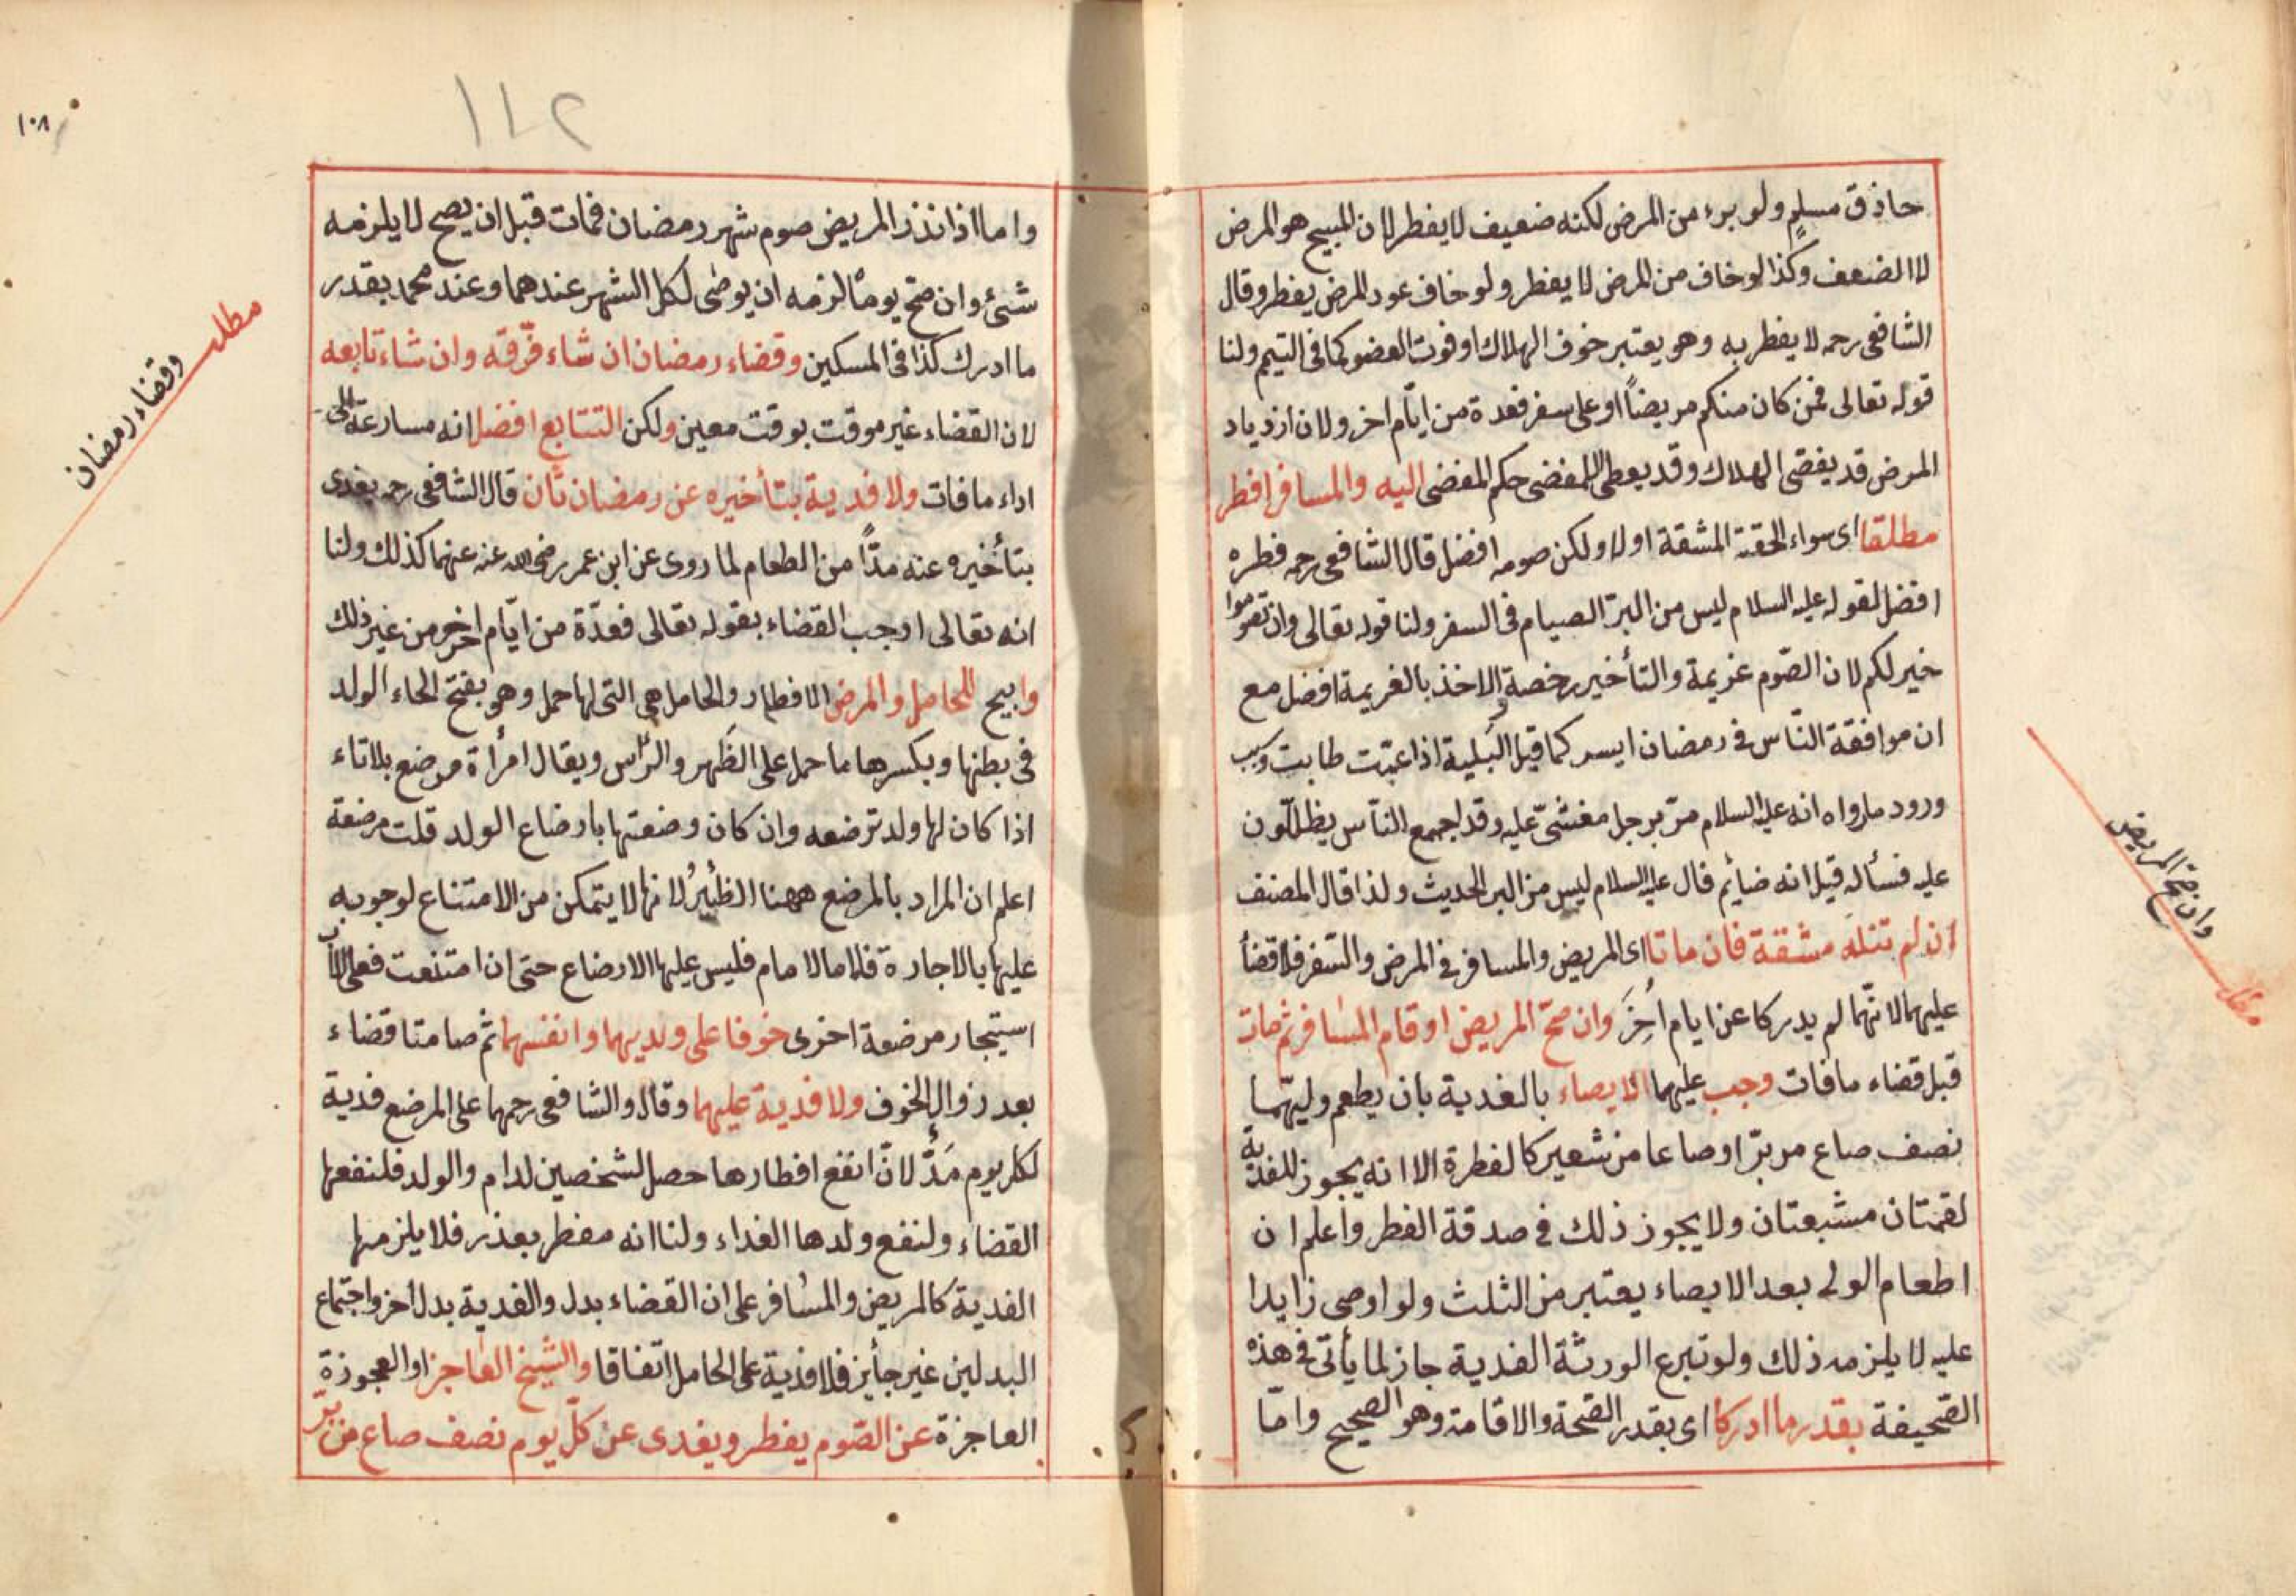 حاذق مسلم ولو برء من المرض لكنه ضعيف لا يفطر لان المبيح هو المرض
لا الضعف وكذا لو خاف من المرض لا يفطر ولو خاف عود المرض يفطر وقال
الشافعى رحمه لا يفطر به وهو يعتبر خوف الهلاك او فوت العضو كما فى التيمم ولنا
قوله تعالى فمن كان منكم مريضاً او على سفر فعدة من ايّام اخر ولان ازدياد
المرض قد يفضى الهلاك وقد يعطى للمفضى حكم المفضى اليه والمسافر افطر
مطلقا اى سواء لحقته المشقة اولا ولكن صومه افضل قال الشافعى رحمه فطره
افضل لقوله عليه السلام ليس من البر الصيام فى السفر ولنا قوله تعالى وان تصوموا
خير لكم لان الصّوم عزيمة والتأخير رخصة والاخذ بالعزيمة افضل مع
ان موافقة النّاس فى رمضان ايسر كما قيل البَلية اذا عمّت طابت وسبب
ورود ما رواه انه عليه السلام مرّ برجل مغشىّ عليه وقد اجمع النّاس يظللون
عليه فسأله قيل انه صائم قال عليه السلام ليس من البر الحديث ولذا قال المصنف
ان لم تنله مشقة فان ماتا اى المريض والمسافر فى المرض والسّفر فلا قضأ
عليهما لانّهما لم يدركا عن ايام أُخَرَ وان صحّ المريض او قام المسافر ثم مات
قبل قضاء ما فات وجب عليهما الايصاء بالفدية بان يطعم وليهّما
نصف صاع من برّ او صاعا من شعير كالفطرة الا انه يجوز للفدية
لقمتان مشبعتان ولا يجوز ذلك فى صدقة الفطر واعلم ان
اطعام الولى بعد الايصاء يعتبر من الثلث ولو اوصى زايدا
عليه لا يلزمه ذلك ولو تبرع الورثة الفدية جاز لما يأتى فى هذه
الصّحيفة بقدر ما ادركا اى بقدر الصّحة والاقامة وهو الصحيح وامّا
وان صحّ المريض
مطلب
١٤٢
١٠٨
واما اذا نذر المريض صوم شهر رمضان فمات قبل ان يصح لا يلزمه
شئ وان صحّ يوماً لزمه ان يوصٰى لكل الشهر عندهما وعند محمد بقدر
ما ادرك كذا فى المسكين وقضاء رمضان ان شاء فرّقه وان شاء تابعه
لان القضاء غير موقت بوقت معين ولكن التتابع افضل انه مسارعة الى
اداء ما فات ولا فدية بتأخيره عن رمضان ثان قال الشافعى رحمه يفدى
بتأخيره عنه مدّاً من الطعام لما روى عن ابن عمر رضى الله عنه عنهما كذلك ولنا
انه تعالى اوجب القضاء بقوله تعالى فعدّة من ايّام اخر من غير ذلك
وابيح للحامل والمرضع الافطار والحامل هى التى لها حمل وهو بفتح الحاء الولد
فى بطنها وبكسرها ما حمل على الظَهر والرّأس ويقال امرأة مرضع بلا تاء
اذا كان لها ولد ترضعه وان كان وضعتها بارضاع الولد قلت مرضعة
اعلم ان المراد بالمرضع ههنا الظئير لانها لا يتمكن من الامتناع لوجوبه
عليها بالاجارة فلاما الامام فليس عليها الارضاع حتى ان امتنعت فعلى الاب
استيجار مرضعة اخرى خوفا على ولديهما وانفسهما ثم صامتا قضاء
بعد زوال الخوف ولا فدية عليهما وقال والشافعى رحمهما على المرضع فدية
لكل يوم مَدٌّ لانّ انفع افطارها حصل لشخصين لدام والولد فلنفعها
القضاء ولنفع ولدها الغداء ولنا انه مفطر بعذر فلا يلزمها
الفدية كالمريض والمسٰافر على ان القضاء بدل والفدية بدل أخر واجتماع
البدلين غير جأيز فلا فدية على الحامل اتفاقا والشيخ العٰاجز او العجوزة
العاجزة عن الصّوم يفطر ويفدى عن كلّ يوم نصف صاع من برّ
مطلب
وقضاء رمضان